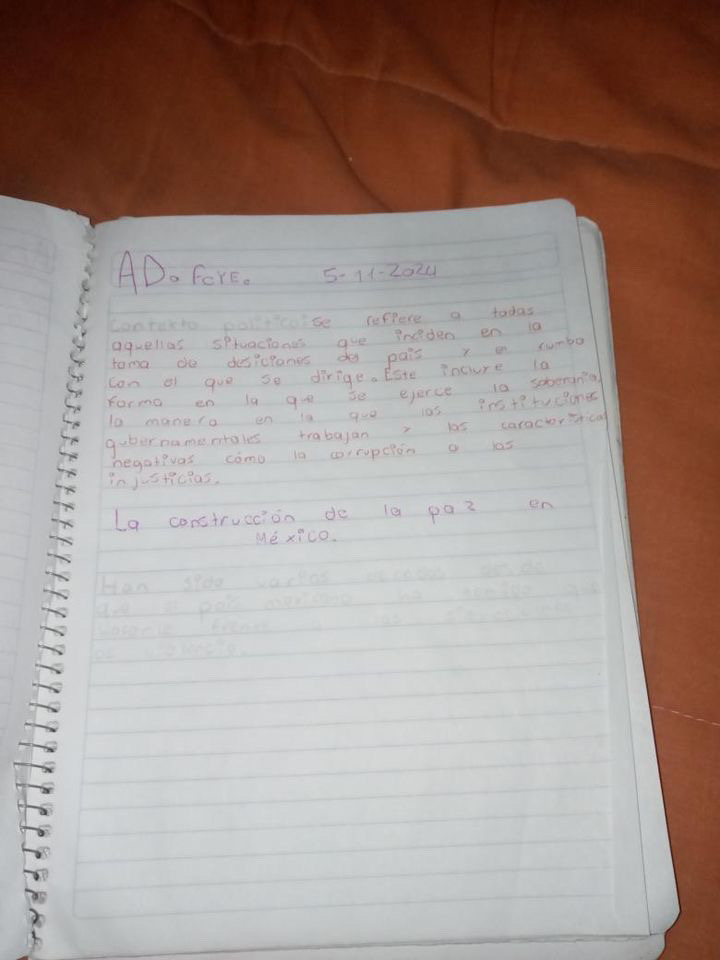 AD. FCYE. 5-11-2024
Contexto político: se refiere a todas
aquellas situaciones que inciden en la
toma de desiciones del país y en rumbo
con el que se dirige. Este incluye la
forma en la que se ejerce la soberania,
la manera en la que las instituciones
gubernamentales trabajan y las características
negativas cómo la corrupción o las
injusticias.
La construcción de la paz en
México.
Han sido varias decadas desde
que el país mexicano ha tenido que
hacerle frente a las situaciones
de violencia.